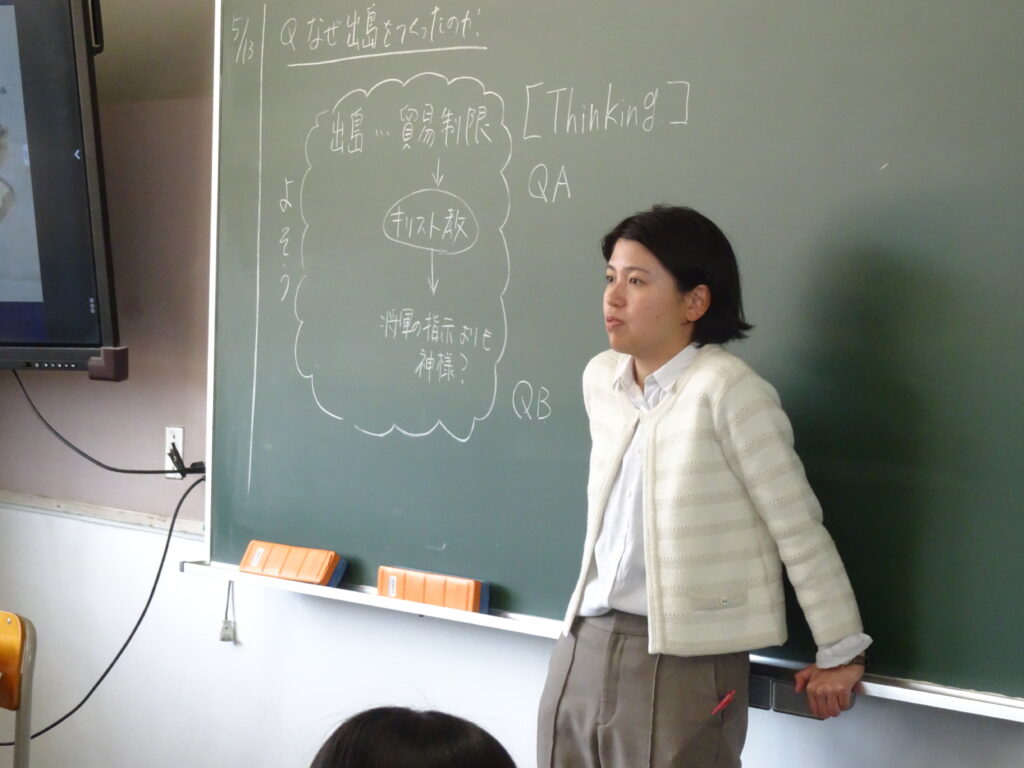 5/13
Q なぜ出島をつくったのか?
よそう
出島…貿易制限
↓
キリスト教
↓
将軍の指示よりも
神様?
[Thinking.]
QA
QB